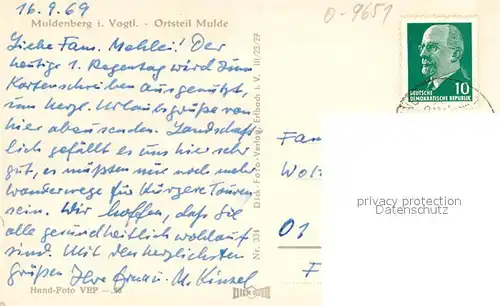 16.9.69
Muldenberg i. Vogtl. - Ortsteil Mulde
O-9651
Liebe Fam. Mehlei! Der
heutige 1. Regentag wird zum
Kartenschreiben ausgenützt,
um herzl. Urlaubsgrüße von
hier abzusenden. Landschaft-
lich gefällt es uns hier sehr
gut, es müßten nur noch mehr
Wanderwege für kürzere Touren
sein. Wir hoffen, daß Sie
alle gesundheitlich wohlauf
sind. Mit den herzlichsten
Grüßen Ihre M. Kinzel
Hand-Foto VEP
Nr. 331 Dick-Foto-Verlag, Erlbach i. V. III/23/2F
DICK
10
DEUTSCHE
DEMOKRATISCHE REPUBLIK
Fam
Wol
privacy protection
Datenschutz
01
F